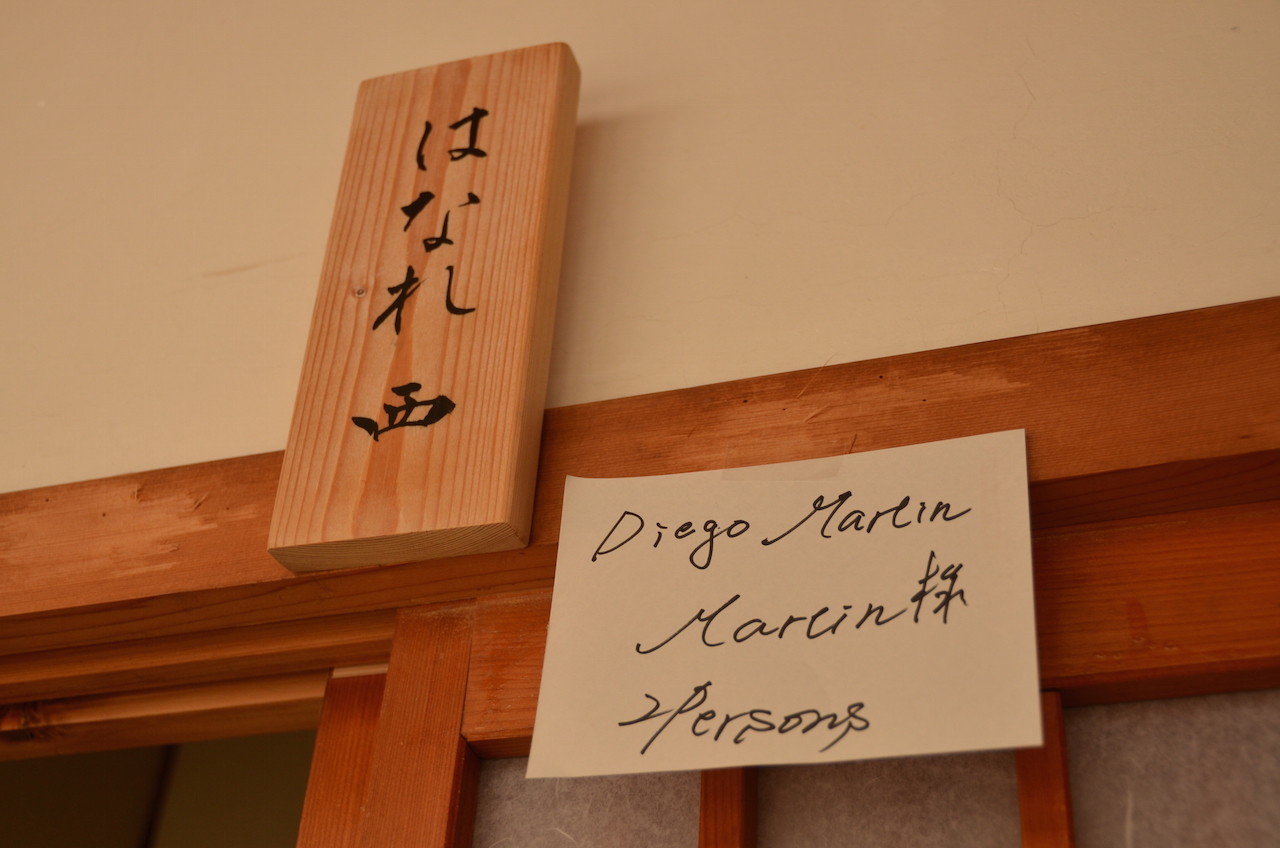 はなれ 西
Diego Martin
Martin様
2Persons